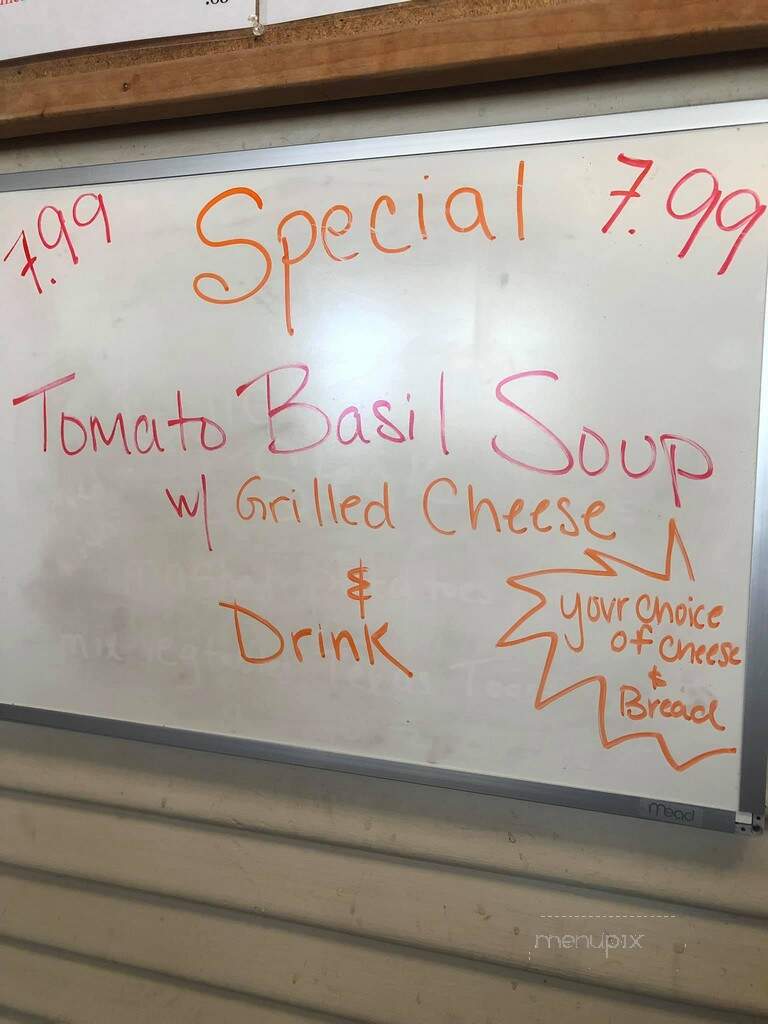 .00
7.99 Special 7.99
Tomato Basil Soup
w/ Grilled Cheese
&
Drink
your choice
of cheese
&
Bread
mead
menupix